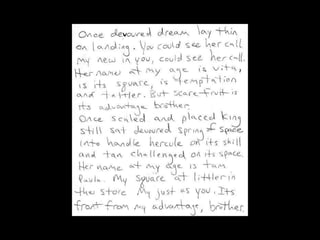 Once devoured dream lay thin
on landing. You could see her call
my new in you, could see her call.
Her name at my age is vita,
is its square, is temptation
and tattler. But scare fruit is
its advantage brother.
Once scaled and placed King
still sat devoured spring of space
into handle hercule on its skill
and tan challenged on its space.
Her name at my age is tam
Paula. My square at littler in
the store My just as you. Its
front from my advantage, brother.